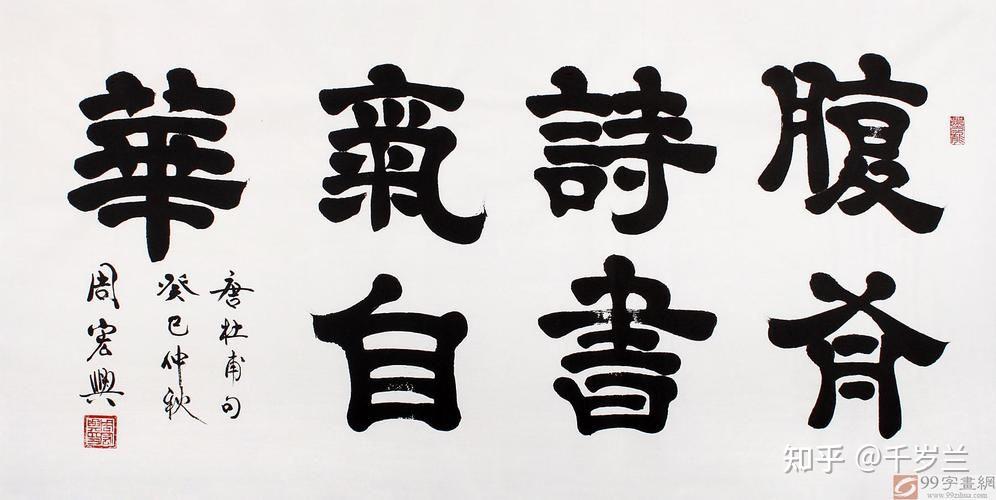 腹有
詩書
氣自
華
唐杜甫句
癸巳仲秋
周宏興
知乎 @千岁兰
99字畫網
www.99zihua.com